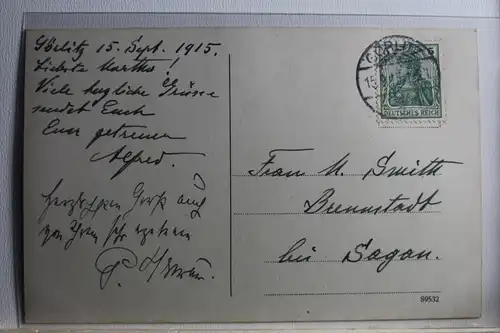 Görlitz 15. Sept. 1915.
Liebste Martha!
Viele herzliche Grüsse
sendet Euch
Euer getreuer
Alfred.
herzlichen Gruß auch
von Ihrem
P.
GÖRLITZ
DEUTSCHES REICH
Frau M. Smith
Brennstadt
bei Sagan.
89532